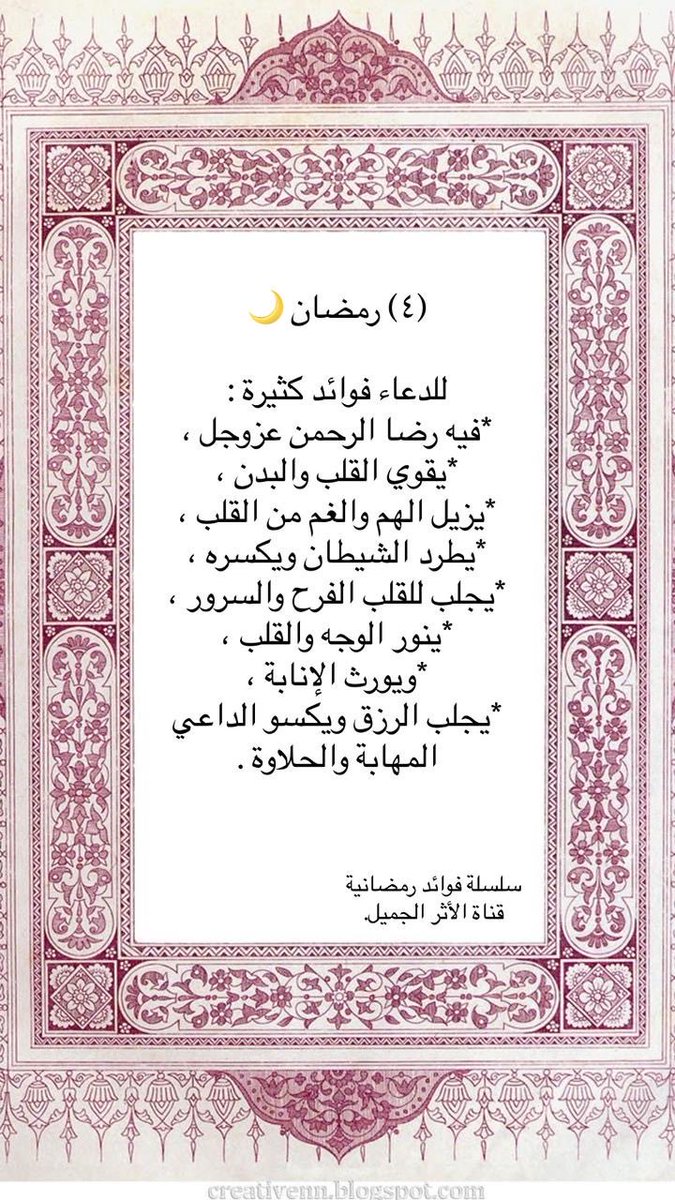 (٤) رمضان 🌙
للدعاء فوائد كثيرة :
*فيه رضا الرحمن عزوجل ،
*يقوي القلب والبدن ،
*يزيل الهم والغم من القلب ،
*يطرد الشيطان ويكسره ،
*يجلب للقلب الفرح والسرور ،
*ينور الوجه والقلب ،
*ويورث الإنابة ،
*يجلب الرزق ويكسو الداعي
المهابة والحلاوة .
سلسلة فوائد رمضانية
قناة الأثر الجميل.
creativenn.blogspot.com